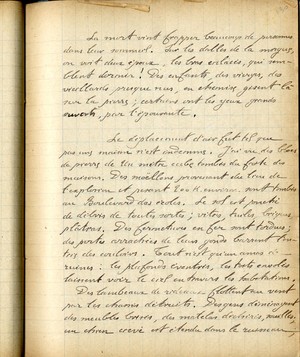 La mort vint frapper beaucoup de personnes
dans leur sommeil. Sur les dalles de la morgue,
on voit deux époux, les bras enlacés, qui sem-
blent dormir! Des enfants, des vierges, des
vieillards presque nus, en chemise, gisent là
sur la pierre; certains ont les yeux grands
ouverts, par l'épouvante.
Le déplacement d'air fut tel que
pas une maison n'est indemne. J'ai vu des blocs
de pierre de un mètre cube tombés du faîte des
maisons. Des moëllons provenant du lieu de
l'explosion et pesant sont tombés
au Boulevard des écoles. Le sol est jonché
de débris de toutes sortes; vitres, tuiles, briques,
plâtras. Des fermetures en fer sont tordues;
des portes arrachées de leurs gonds barrent l'en-
trée des corridors. Tout n'est qu'un amas de
ruines: les plafonds éventrés, les toits
laissent voir le ciel en travers les habitations.
Des lambeaux de flottent au vent
par les chassis détruits. Des gens déménagent
des meubles brisés, des matelas déchirés, mouillés,
un chien crevé est étendu dans le ruisseau,